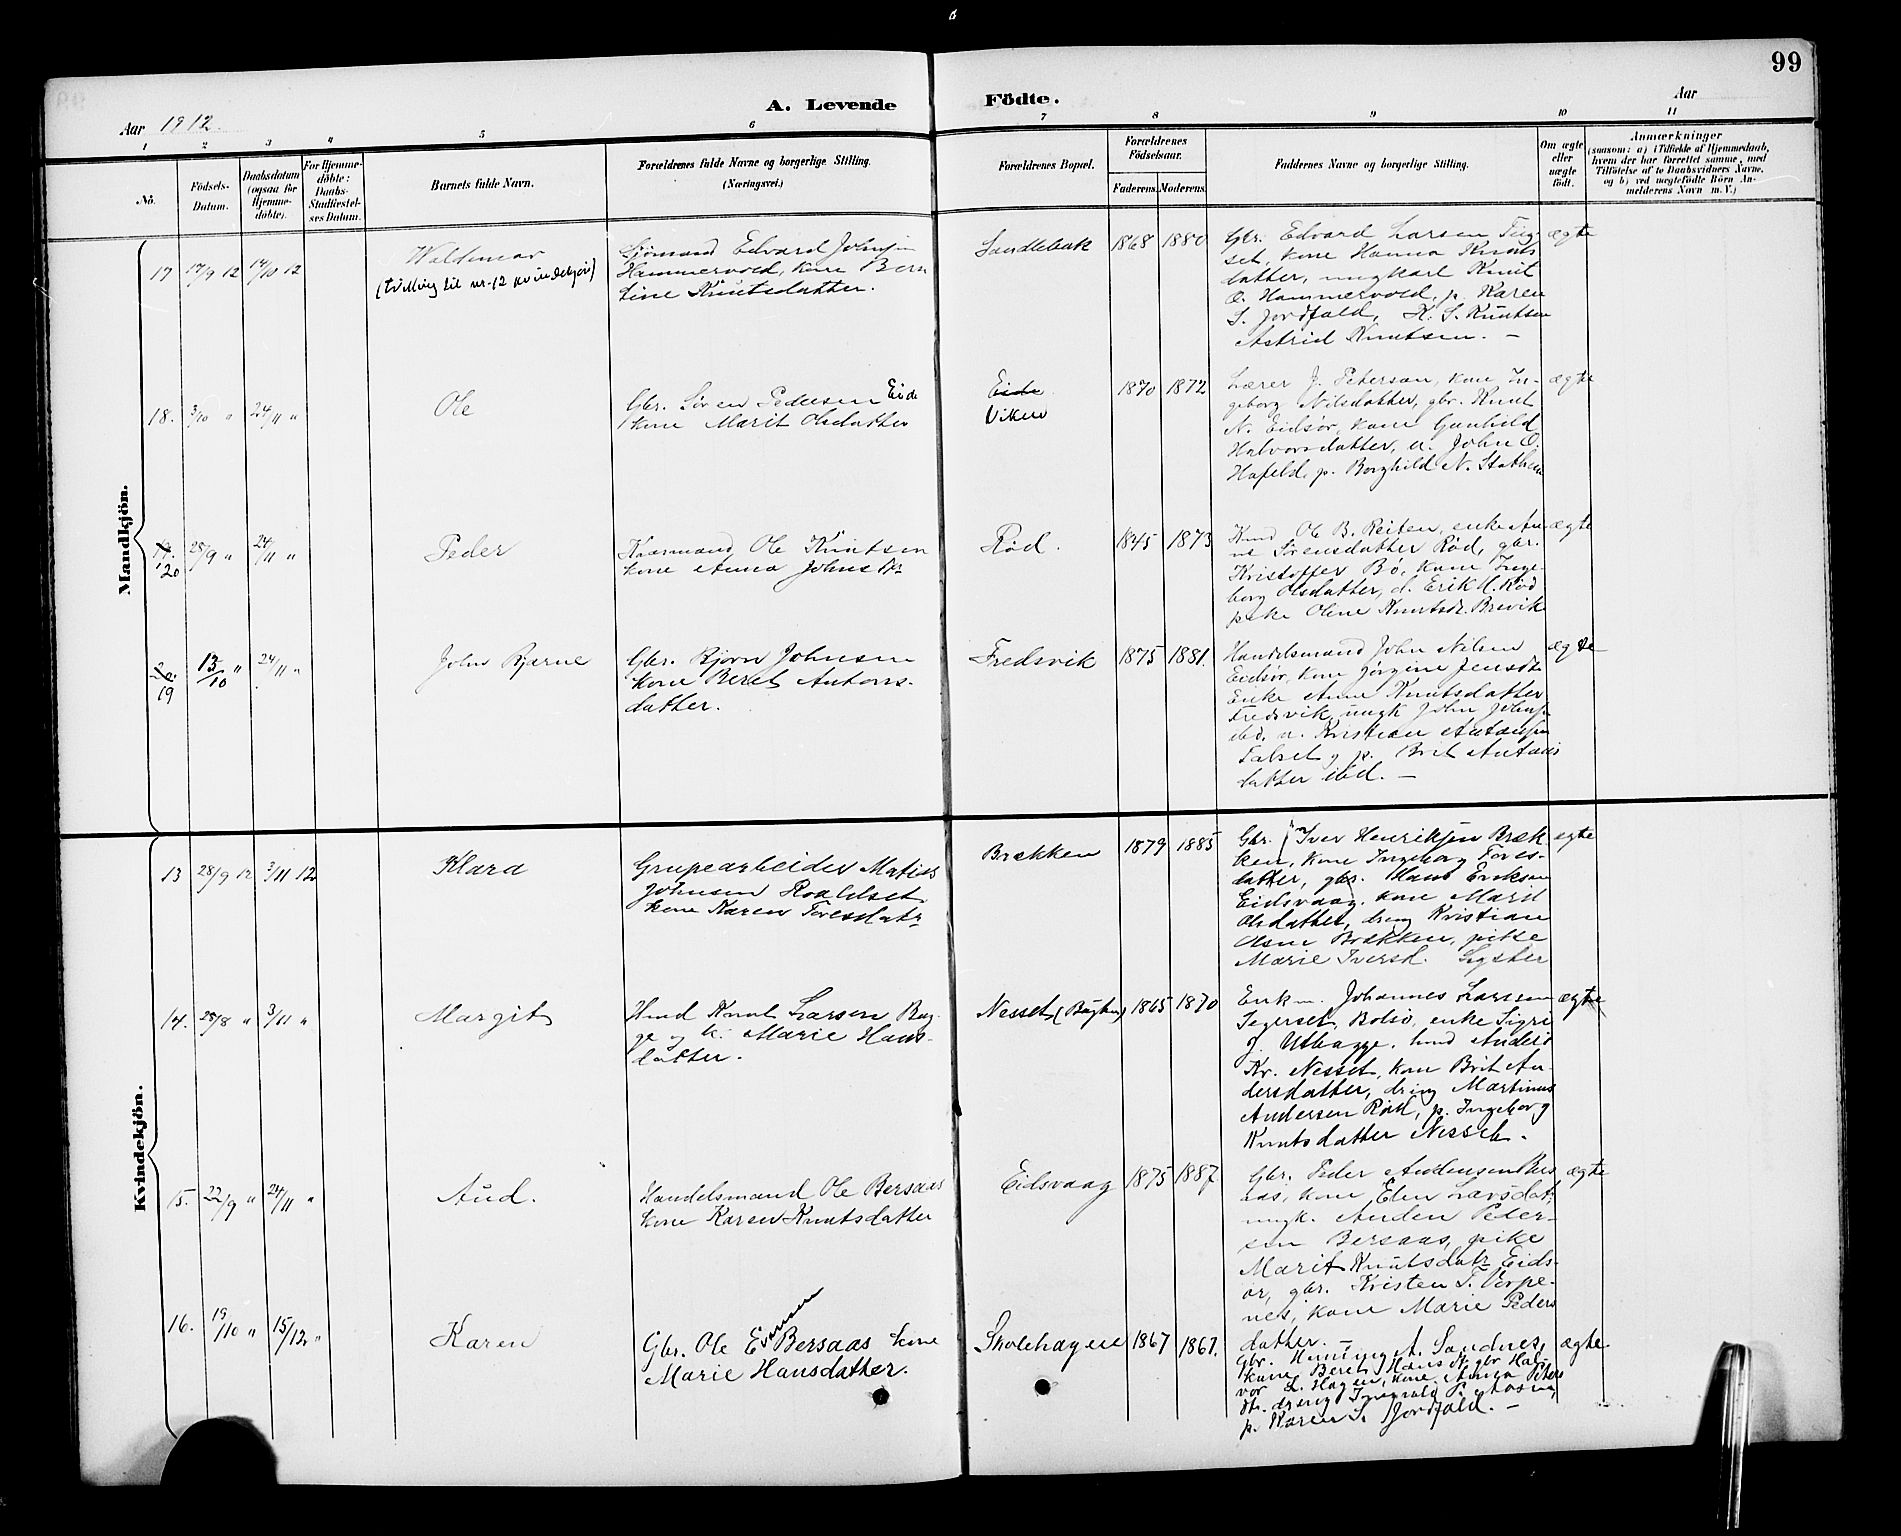 99
A. Levende Födte.
Aar 1912.
Aar
1 2 3 4 5 6 7 8 9 10 11
No.
Födsels-Datum.
Daabsdatum (ogsaa for Hjemme-döbte).
For Hjemme-döbte: Daabs-Stadfæstel-ses Datum.
Barnets fulde Navn.
Forældrenes fulde Navne og borgerlige Stilling. (Næringsvei.)
Forældrenes Bopæl.
Forældrenes Födselsaar.
Faderens. Moderens.
Faddernes Navne og borgerlige Stilling.
Om ægte eller uægte födt.
Anmærkninger
(saasom: a) i Tilfælde af Hjemmedaab,
hvem der har forrettet samme, med
Tilföielse af to Daabsvidners Navne,
og b) ved uægtefödte Börn An-
melderens Navn m. V.)
Mandkjön.
17 17/9 12 14/10 12
Waldemar
(tvilling til nr. 12 kvindekjøn)
Sjømand Edvard Johnsen
Hammervold, kone Bern
tine Knutsdatter.
Sandlebak 1868 1880
Gbr. Edvard Larsen Tiig-
set, kone Hanna Knuts
datter, ungkarl Knut
O. Hammervold, p. Karen
S. Jordfald, K. S. Knutsen
Astrid Knutsen. —
ægte
18. 3/10 " 24/11 "
Ole
Gbr. Sören Pedersen Eide
kone Marit Olsdatter
Eide
Viken
1870 1872
Lærer J. Petersen, kone In-
geborg Nilsdatter, gbr. Knut
N. Eidsør, kone Gunhild
Halvorsdatter, u. John O.
Hafeld, p. Borghild N.
ægte
19. 20 25/9 " 24/11 "
Peder
Kaarmand Ole Knutsen
kone Anna Johnsdtr
Rød. 1845 1873
Kaard Ole B. Reiten, enke An-
ne Sørensdatter Rød, gbr.
Kristoffer Bø, kone Inge-
borg Olsdatter, d. Erik K. Rød
pike Oline Knutsdr. Brevik
ægte
20. 19 13/10 " 24/11 "
John Bjarne
Gbr. Bjørn Johnsen
kone Beret Antons-
datter.
Fredsvik 1875 1881.
Handelsmand John Nilsen
Eidsør, kone Jørgine Jensdtr
Enke Anne Knutsdatter
Fredsvik, ungk John Johnsen
ibd. u. Kristian Antonsen
p. Brit Antons
datter ibid. —
ægte
Kvindekjön.
13 28/9 12 3/11 12
Klara
Grupearbeider Matias
Johnsen Roaldset
kone Karen Toresdatr
Brækken 1879 1885
Gbr. Iver Henriksen Bræk-
ken, kone Ingeborg Tores-
datter, gbr. Hans Eriksen
Eidsvaag, kone Marit
Olsdatter, dreng Kristian
Olsen Brækken, pike
Marie Iversd. Syster
ægte
14. 28/8 " 3/11 "
Margit
Hmd Knut Larsen Bug-
ge og k. Marie Hans-
datter.
Nesset (Bugten) 1865 1870
Enkm. Johannes Larssen
Segerset, Bolsö, enke Sigri
J. Utbugge, hmd Anders
Kr. Nesset, kone Brit An-
dersdatter, dreng Martinus
Andersen Rød, p. Ingeborg
Knutsdatter Nesset.
ægte
15. 22/9 " 24/11 "
Aud.
Handelsmand Ole Bersaas
kone Karen Knutsdatter
Eidsvaag 1875 1887.
Gbr. Peder Andersen Bers
aas, kone Elen Larsdat,
ungk. Anders Peder-
sen Bersaas, pike
Marit Knutsdatr Eids-
ør, gbr. Kristen T. Torpe-
nes, kone Marie Peders
datter. —
ægte
16. 19/10 " 15/12 "
Karen
Gbr. Ole Evensen Bersaas kone
Marie Hansdatter.
Skolehagen 1867 1867.
Gbr. Henning A. Sandnes,
kone Beret Hans d., gbr Hal-
vor L. Hagen, kone Anna Peters
dtr. dreng Ingvald P. Aasen,
p. Karen S. Jordfald. —
ægte